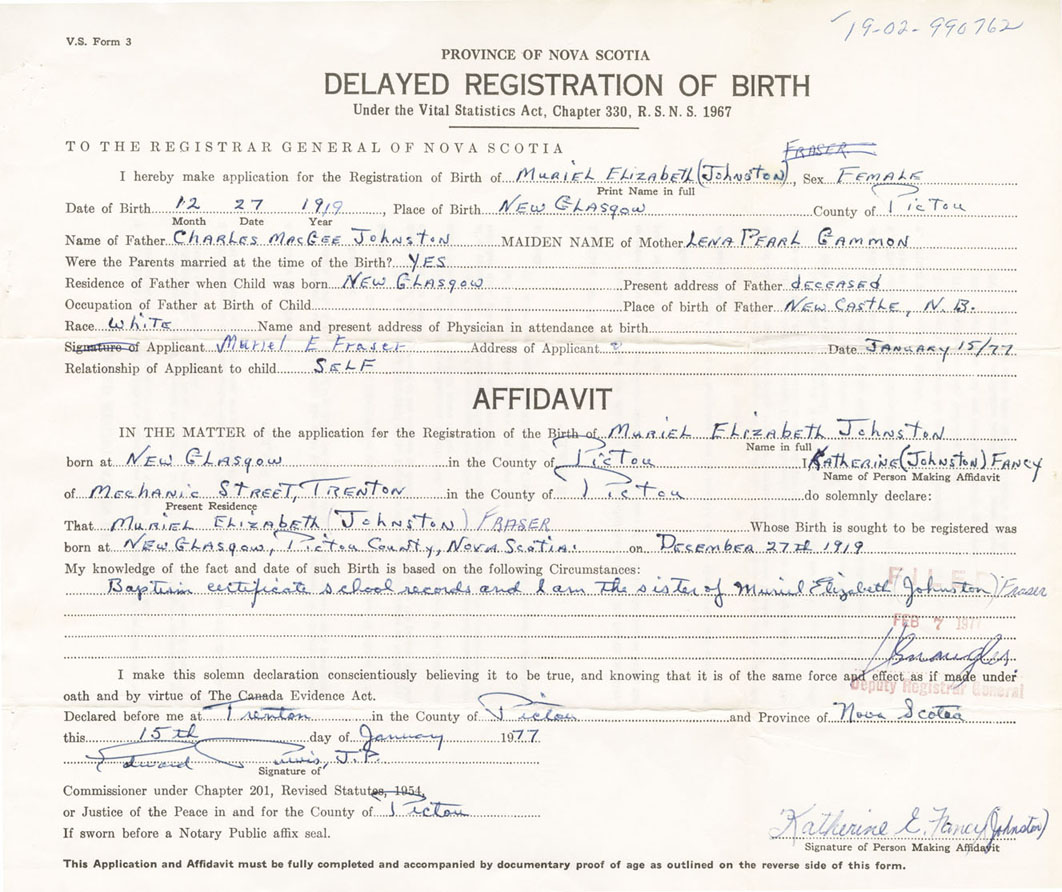 19-02-990762
V.S. Form 3
PROVINCE OF NOVA SCOTIA
DELAYED REGISTRATION OF BIRTH
Under the Vital Statistics Act, Chapter 330, R. S. N. S. 1967
TO THE REGISTRAR GENERAL OF NOVA SCOTIA FRASER
I hereby make application for the Registration of Birth of MURIEL ELIZABETH (JOHNSTON), Sex FEMALE
Print Name in full
Date of Birth 12 27 1919, Place of Birth NEW GLASGOW County of PICTOU
Month Date Year
Name of Father CHARLES MACGEE JOHNSTON MAIDEN NAME of Mother LENA PEARL GAMMON
Were the Parents married at the time of the Birth? YES
Residence of Father when Child was born NEW GLASGOW Present address of Father deceased
Occupation of Father at Birth of Child Place of birth of Father NEW CASTLE, N.B.
Race White Name and present address of Physician in attendance at birth
Signature of Applicant Muriel E Fraser Address of Applicant Date JANUARY 15/77
Relationship of Applicant to child SELF
AFFIDAVIT
IN THE MATTER of the application for the Registration of the Birth of MURIEL ELIZABETH JOHNSTON
Name in full
born at NEW GLASGOW in the County of PICTOU I KATHERINE (JOHNSTON) FANCY
Name of Person Making Affidavit
of MECHANIC STREET, TRENTON in the County of PICTOU do solemnly declare:
Present Residence
That MURIEL ELIZABETH (JOHNSTON) FRASER Whose Birth is sought to be registered was
born at NEW GLASGOW, PICTOU COUNTY, NOVA SCOTIA. on DECEMBER 27th 1919
My knowledge of the fact and date of such Birth is based on the following Circumstances:
FILED
Baptism certificate school records and I am the sister of Muriel Elizabeth Johnston) Fraser
FEB 7 1977
I make this solemn declaration conscientiously believing it to be true, and knowing that it is of the same force and effect as if made under
Deputy Registrar General
oath and by virtue of The Canada Evidence Act.
Declared before me at Trenton in the County of Pictou and Province of Nova Scotia
this 15th day of January 1977
Edward Purvis, J.P.
Signature of
Commissioner under Chapter 201, Revised Statutes, 1954,
or Justice of the Peace in and for the County of Pictou
Katherine E. Fancy (Johnston)
Signature of Person Making Affidavit
If sworn before a Notary Public affix seal.
This Application and Affidavit must be fully completed and accompanied by documentary proof of age as outlined on the reverse side of this form.